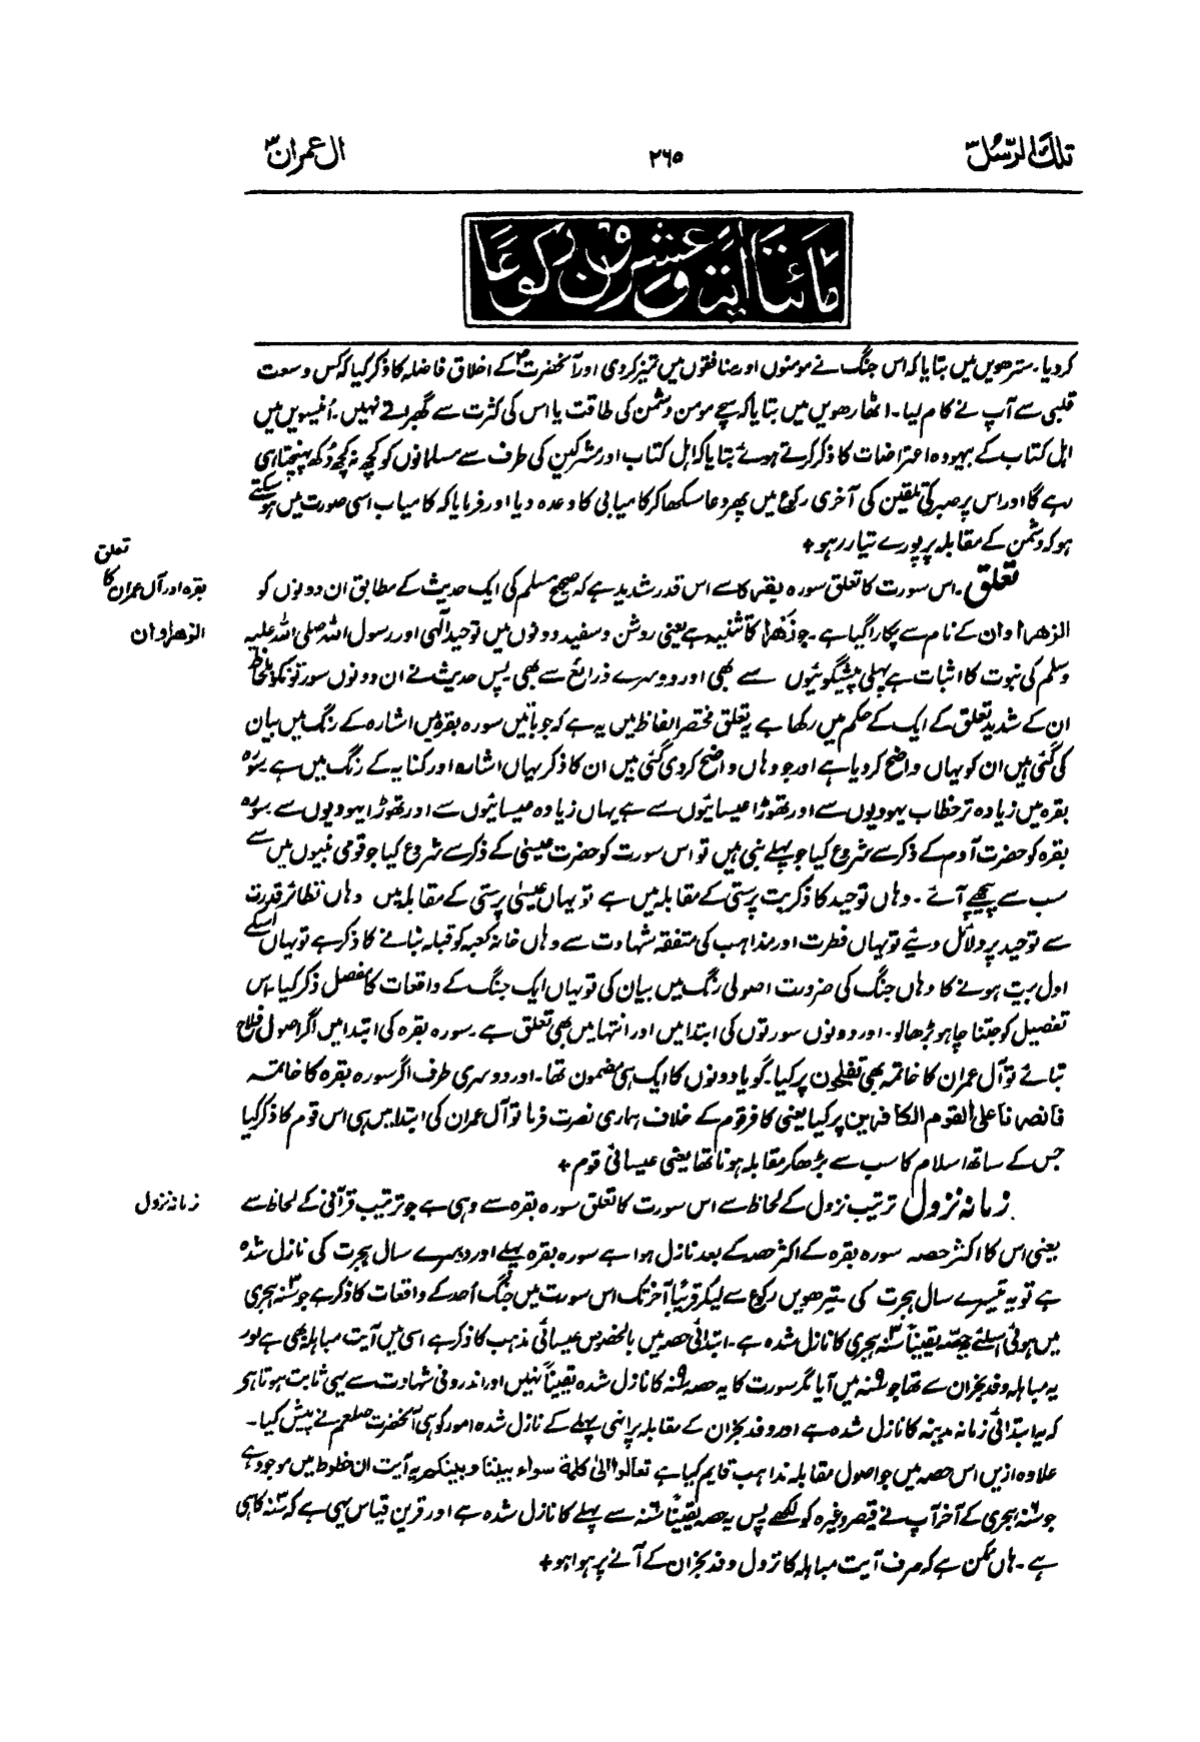 تلك الرسل ۳
۲۶۵
ال عمران ۳
مائتا آية وعشرون ركوعا
کردیا۔ سترھویں میں بتایا کہ اس جنگ نے مومنوں اور منافقوں میں تمیز کر دی اور آنحضرت ؐ کے اخلاق فاضلہ کا ذکر کیا کہ کس وسعت
قلبی سے آپ نے کام لیا۔ اٹھارھویں میں بتایا کہ سچے مومن دشمن کی طاقت یا اس کی کثرت سے گھبراتے نہیں۔ اُنیسویں میں
اہل کتاب کے بیہودہ اعتراضات کا ذکر کرتے ہوئے بتایا کہ اہل کتاب اور مشرکین کی طرف سے مسلمانوں کو کچھ نہ کچھ دُکھ پہنچتا ہی
رہے گا اور اس پر صبر کی تلقین کی آخری رکوع میں پھر دعا سکھا کر کامیابی کا وعدہ دیا اور فرمایا کہ کامیاب اسی صورت میں ہو سکتے
ہو کہ دشمن کے مقابلہ پر پورے تیار رہو +
تعلق
بقرہ اور آل عمران کا
الزھراوان
تعلق۔ اس سورت کا تعلق سورہ بقرہ کا سے اس قدر شدید ہے کہ صحیح مسلم کی ایک حدیث کے مطابق ان دونوں کو
الزھراوان کے نام سے پکارا گیا ہے۔ جو زَھْرا کا تثنیہ ہے یعنی روشن و سفید دونوں میں توحید الٰہی اور رسول اللہ صلی اللہ علیہ
وسلم کی نبوت کا اثبات ہے پہلی پیشگوئیوں سے بھی اور دوسرے ذرائع سے بھی پس حدیث نے ان دونوں سورتوں کو بلحاظ
ان کے شدید تعلق کے ایک کے حکم میں رکھا ہے یہ تعلق مختصر الفاظ میں یہ ہے کہ جو باتیں سورہ بقرہ میں اشارہ کے رنگ میں بیان
کی گئی ہیں ان کو یہاں واضح کر دیا ہے اور جو وہاں واضح کر دی گئی ہیں ان کا ذکر یہاں اشارہ اور کنایہ کے رنگ میں ہے سورہ
بقرہ میں زیادہ تر خطاب یہودیوں سے اور تھوڑا عیسائیوں سے ہے یہاں زیادہ عیسائیوں سے اور تھوڑا یہودیوں سے سورہ
بقرہ کو حضرت آدم کے ذکر سے شروع کیا جو پہلے نبی ہیں تو اس سورت کو حضرت عیسیٰ کے ذکر سے شروع کیا جو قومی نبیوں میں سے
سب سے پیچھے آئے۔ وہاں توحید کا ذکر بت پرستی کے مقابلہ میں ہے تو یہاں عیسیٰ پرستی کے مقابلہ میں وہاں نظائر قدرت
سے توحید پر دلائل دیئے تو یہاں فطرت اور مذاہب کی متفقہ شہادت سے وہاں خانہ کعبہ کو قبلہ بنانے کا ذکر ہے تو یہاں اسکے
اول بیت ہونے کا وہاں جنگ کی ضرورت اصولی رنگ میں بیان کی تو یہاں ایک جنگ کے واقعات کا مفصل ذکر کیا۔ اس
تفصیل کو جتنا چاہو بڑھالو۔ اور دونوں سورتوں کی ابتدا میں اور انتہا میں بھی تعلق ہے۔ سورہ بقرہ کی ابتدا میں اگر اصول فلاح
بتائے تو آل عمران کا خاتمہ بھی تفلحون پر کیا۔ گویا دونوں کا ایک ہی مضمون تھا۔ اور دوسری طرف اگر سورہ بقرہ کا خاتمہ
فانصرنا علی القوم الکافرین پر کیا یعنی کافر قوم کے خلاف ہماری نصرت فرما تو آل عمران کی ابتدا میں ہی اس قوم کا ذکر کیا
جس کے ساتھ اسلام کا سب سے بڑھکر مقابلہ ہونا تھا یعنی عیسائی قوم +
زمانہ نزول
زمانہ نزول ترتیب نزول کے لحاظ سے اس سورت کا تعلق سورہ بقرہ سے وہی ہے جو ترتیب قرآنی کے لحاظ سے
یعنی اس کا اکثر حصہ سورہ بقرہ کے اکثر حصہ کے بعد نازل ہوا ہے سورہ بقرہ پہلے اور دوسرے سال ہجرت کی نازل شدہ
ہے تو یہ تیسرے سال ہجرت کی۔ تیرھویں رکوع سے لیکر قریباً آخر تک اس سورت میں جنگ اُحد کے واقعات کا ذکر ہے جو ۳ سنہ ہجری
میں ہوئی اسلئے یہ حصہ یقیناً ۳ سنہ ہجری کا نازل شدہ ہے۔ ابتدائی حصہ میں بالخصوص عیسائی مذہب کا ذکر ہے اسی میں آیت مباہلہ بھی ہے اور
یہ مباہلہ وفد نجران سے تھا جو ۹ سنہ میں آیا مگر سورت کا یہ حصہ ۹ سنہ کا نازل شدہ یقیناً نہیں اور اندرونی شہادت سے یہی ثابت ہوتا ہے
کہ یہ ابتدائی زمانہ مدینہ کا نازل شدہ ہے اور وفد نجران کے مقابلہ پر انہی پہلے کے نازل شدہ امور کو ہی آنحضرت صلعم نے پیش کیا۔
علاوہ ازیں اس حصہ میں جو اصول مقابلہ مذاہب قایم کیا ہے تعالوا الیٰ کلمۃ سواء بیننا و بینکم یہ آیت ان خطوط میں موجود ہے
جو ۶ سنہ ہجری کے آخر آپ نے قیصر وغیرہ کو لکھے پس یہ حصہ یقیناً ۶ سنہ سے پہلے کا نازل شدہ ہے اور قرین قیاس یہی ہے کہ ۳ سنہ کا ہی
ہے۔ ہاں ممکن ہے کہ صرف آیت مباہلہ کا نزول وفد نجران کے آنے پر ہوا ہو +